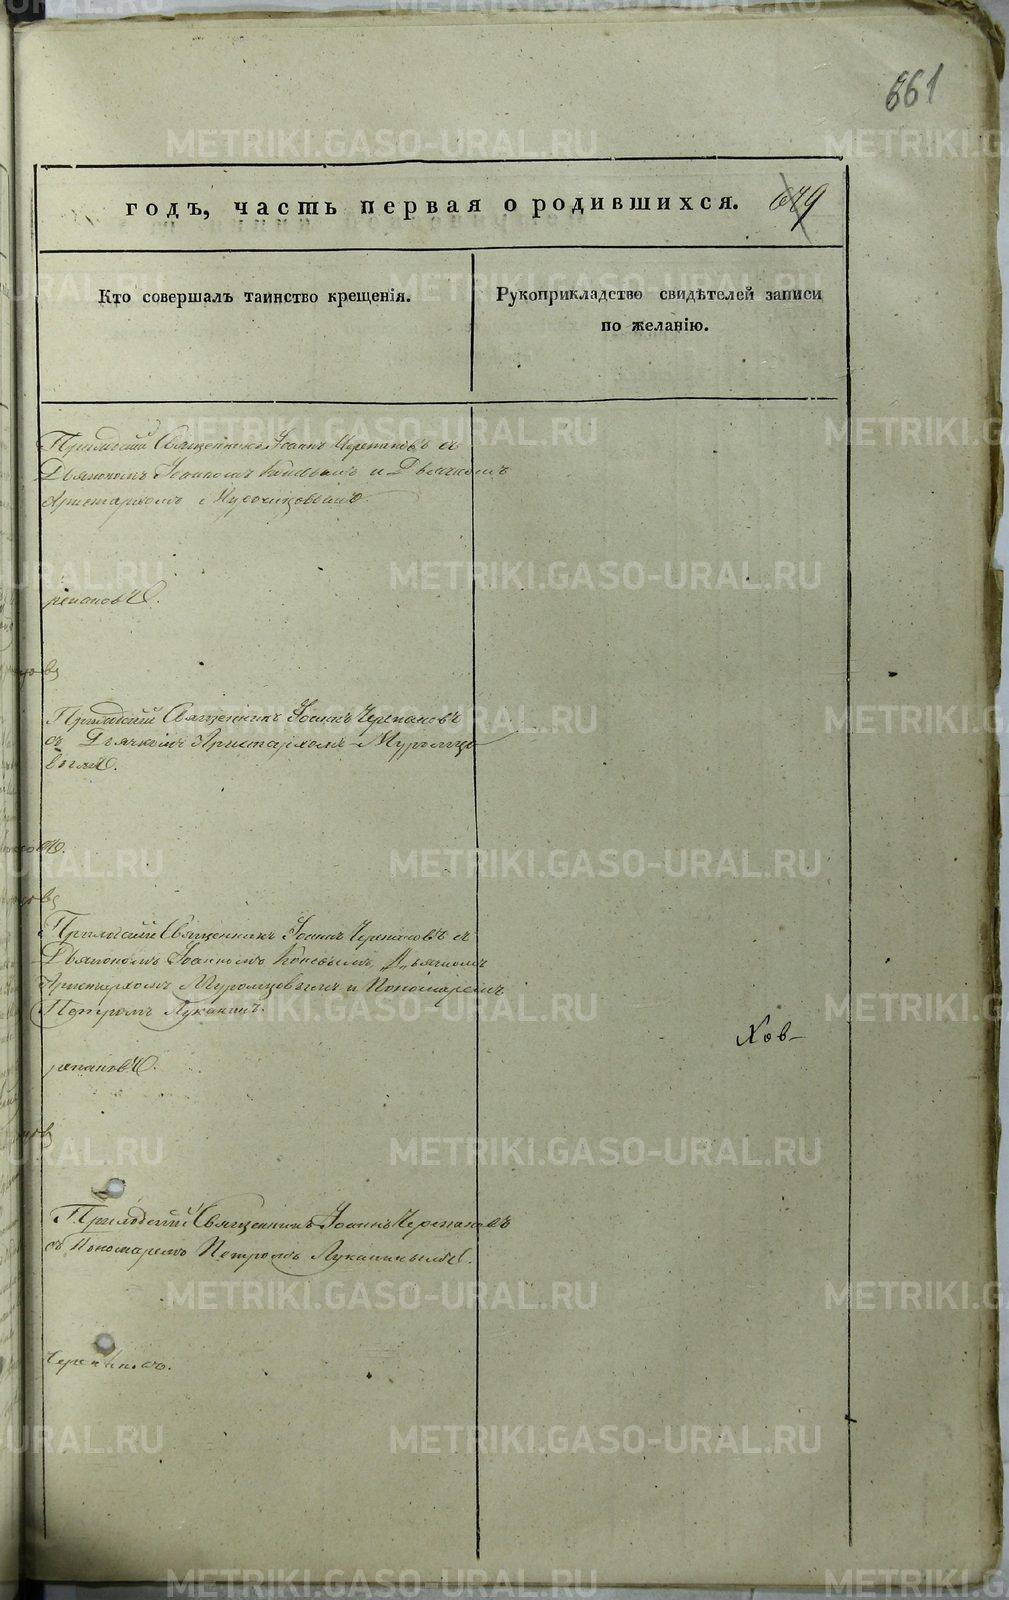 661
годъ, часть первая о родившихся. 679
Кто совершалъ таинство крещенія.
Рукоприкладство свидѣтелей записи
по желанію.
Приходскій Священникъ Іоаннъ Черепановъ съ
Діакономъ Іоанномъ и Дьячкомъ
Аристархомъ Муромцовымъ.
репановъ.
Приходскій Священникъ Іоаннъ Черепановъ
съ Дьячкомъ Аристархомъ Муромцо
вымъ.
Приходскій Священникъ Іоаннъ Черепановъ съ
Діакономъ Іоанномъ Дьячкомъ
Аристархомъ Муромцовымъ и Пономаремъ
Петромъ Луканин
Хов-
репановъ.
Приходскій Священникъ Іоаннъ Черепановъ
съ Пономаремъ Петромъ Луканинымъ.
Черепановъ.
METRIKI.GASO-URAL.RU